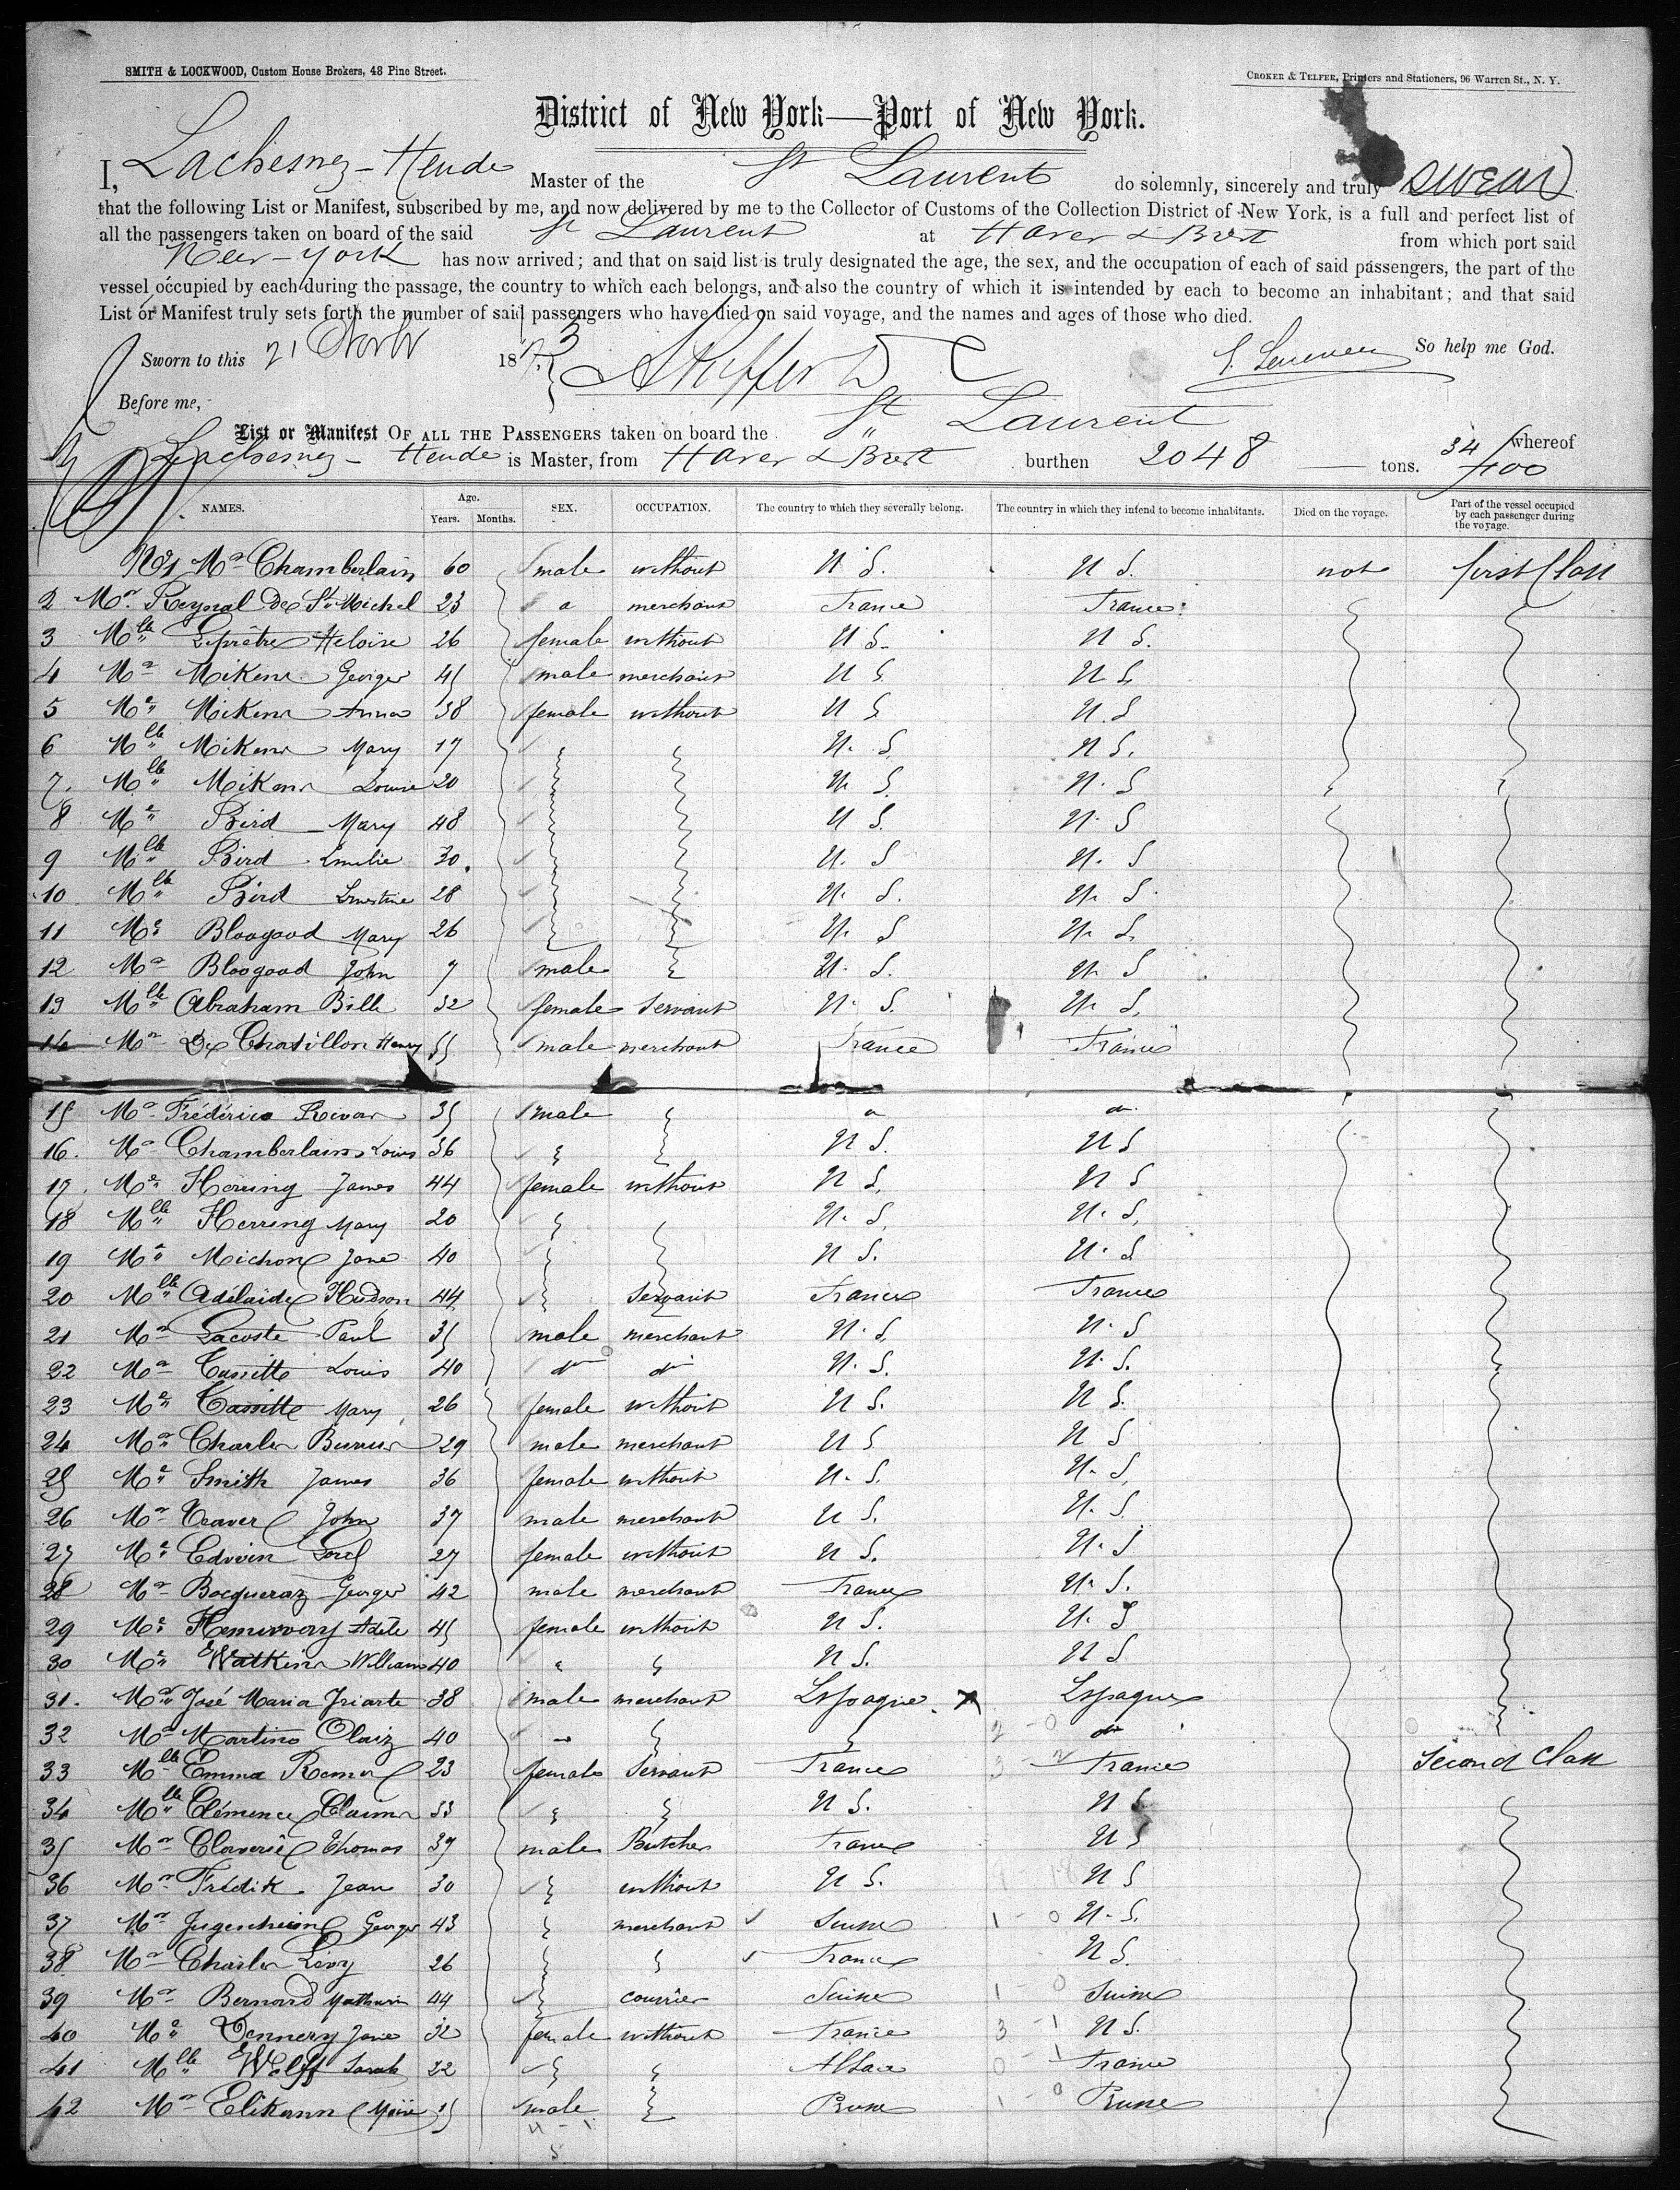 SMITH & LOCKWOOD, Custom House Brokers, 48 Pine Street.
CROKER & TELFER, Printers and Stationers, 96 Warren St., N. Y.
District of New York—Port of New York.
I, Lachesnez-Heude Master of the St Laurent do solemnly, sincerely and truly swear
that the following List or Manifest, subscribed by me, and now delivered by me to the Collector of Customs of the Collection District of New York, is a full and perfect list of
all the passengers taken on board of the said St Laurent at Havre & Brest from which port said
New-York has now arrived; and that on said list is truly designated the age, the sex, and the occupation of each of said passengers, the part of the
vessel occupied by each during the passage, the country to which each belongs, and also the country of which it is intended by each to become an inhabitant; and that said
List or Manifest truly sets forth the number of said passengers who have died on said voyage, and the names and ages of those who died.
Sworn to this 21 Novbr 1873 So help me God.
Before me,
List or Manifest OF ALL THE PASSENGERS taken on board the St Laurent whereof
Lachesnez-Heude is Master, from Havre & Brest burthen 2048 tons. 34/100
NAMES. Age. Years. Months. SEX. OCCUPATION. The country to which they severally belong. The country in which they intend to become inhabitants. Died on the voyage. Part of the vessel occupied by each passenger during the voyage.
No 1 Mr Chamberlain 60 male without U S. U S. not first Class
2 Mr. Reynal De St Michel 23 merchant France France
3 Mlle Leprêtre Héloïse 26 female without U S. U S.
4 Mr Mikens George 45 male merchant U S U S
5 Me Mikens Anna 38 female without U S U.S
6 Mlle Mikens Mary 17 U. S. U S.
7. Mlle Mikens Louise 20 U. S. U. S
8 Me Bird - Mary 48 U S. U. S
9 Mlle Bird Emilie 30. U. S U. S
10 Mlle Bird Ernestine 28 U. S. U. S
11 Me Bloogood Mary 26 U. S U. S.
12 Mr Bloogood John 7 male U. S. U. S
13 Mlle Abraham Bille 32 female Servant U. S. U. S.
14 Mr De Chatillon Henry 55 male merchant France France
15 Mr Frédérico Rivas 35 male
16. Mr Chamberlain Louis 36 U S. U S
17. Me Herring James 44 female without U S. U S
18 Mlle Herring Mary 20 U. S. U. S.
19 Me Michon Jane 40 U S. U. S
20 Mlle Adélaïde Hudson 44 Servant France France
21 Mr Lacoste Paul 35 male merchant U. S. U. S
22 Mr Cassitte Louis 40 do do U. S. U. S.
23 Me Cassitte Mary 26 female without U S. U S.
24 Mr Charles 29 male merchant U S U S
25 Me Smith James 36 female without U. S. U. S.
26 Mr Ceaver John 37 male merchant U S. U. S.
27 Me Edwin 27 female without U S. U. S
28 Mr Bocqueraz George 42 male merchant France U. S.
29 Me Adèle 45 female without U S. U. S
30 Me Watkins William 40 U S. U S
31. Mr José Maria Iriarte 38 male merchant Espagne. Espagne
32 Mr Martino Olaiz 40 do
33 Mlle Emma 23 female Servant France France Second Class
34 Mlle Clémence 33 U S. U S
35 Mr Claverie Thomas 37 male Butcher France U S
36 Mr Frédik. Jean 30 without U S. U S
37 Mr George 43 merchant Suisse U. S.
38 Mr Charles Lévy 26 France U S.
39 Mr Bernard Mathurin 44 courrier Suisse Suisse
40 Me Dennery Jane 32 female without France U S.
41 Mlle Wolff Sarah 22 Alsace France
42 Mr Elikann 35 male Prusse Prusse